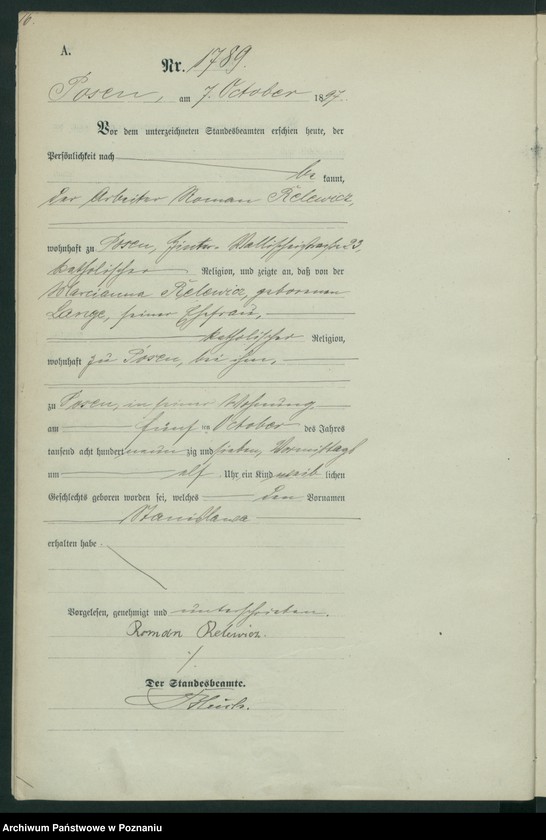 16.
A.
Nr. 1789.
Posen, am 7. October 1897.
Vor dem unterzeichneten Standesbeamten erschien heute, der
Persönlichkeit nach
be kannt,
der Arbeiter Roman Relewicz,
wohnhaft zu Posen, Hinter-Wallischeistraße 23,
katholischer Religion, und zeigte an, daß von der
Marcianna Relewicz, geborenen
Lange, seiner Ehefrau,
katholischer Religion,
wohnhaft zu Posen, bei ihm,
zu Posen, in seiner Wohnung
am fünften October des Jahres
tausend acht hundert neun zig und sieben, Vormittags
um elf Uhr ein Kind weib lichen
Geschlechts geboren worden sei, welches den Vornamen
Stanislawa
erhalten habe.
Vorgelesen, genehmigt und unterschrieben.
Roman Relewicz.
Der Standesbeamte.
Archiwum Państwowe w Poznaniu